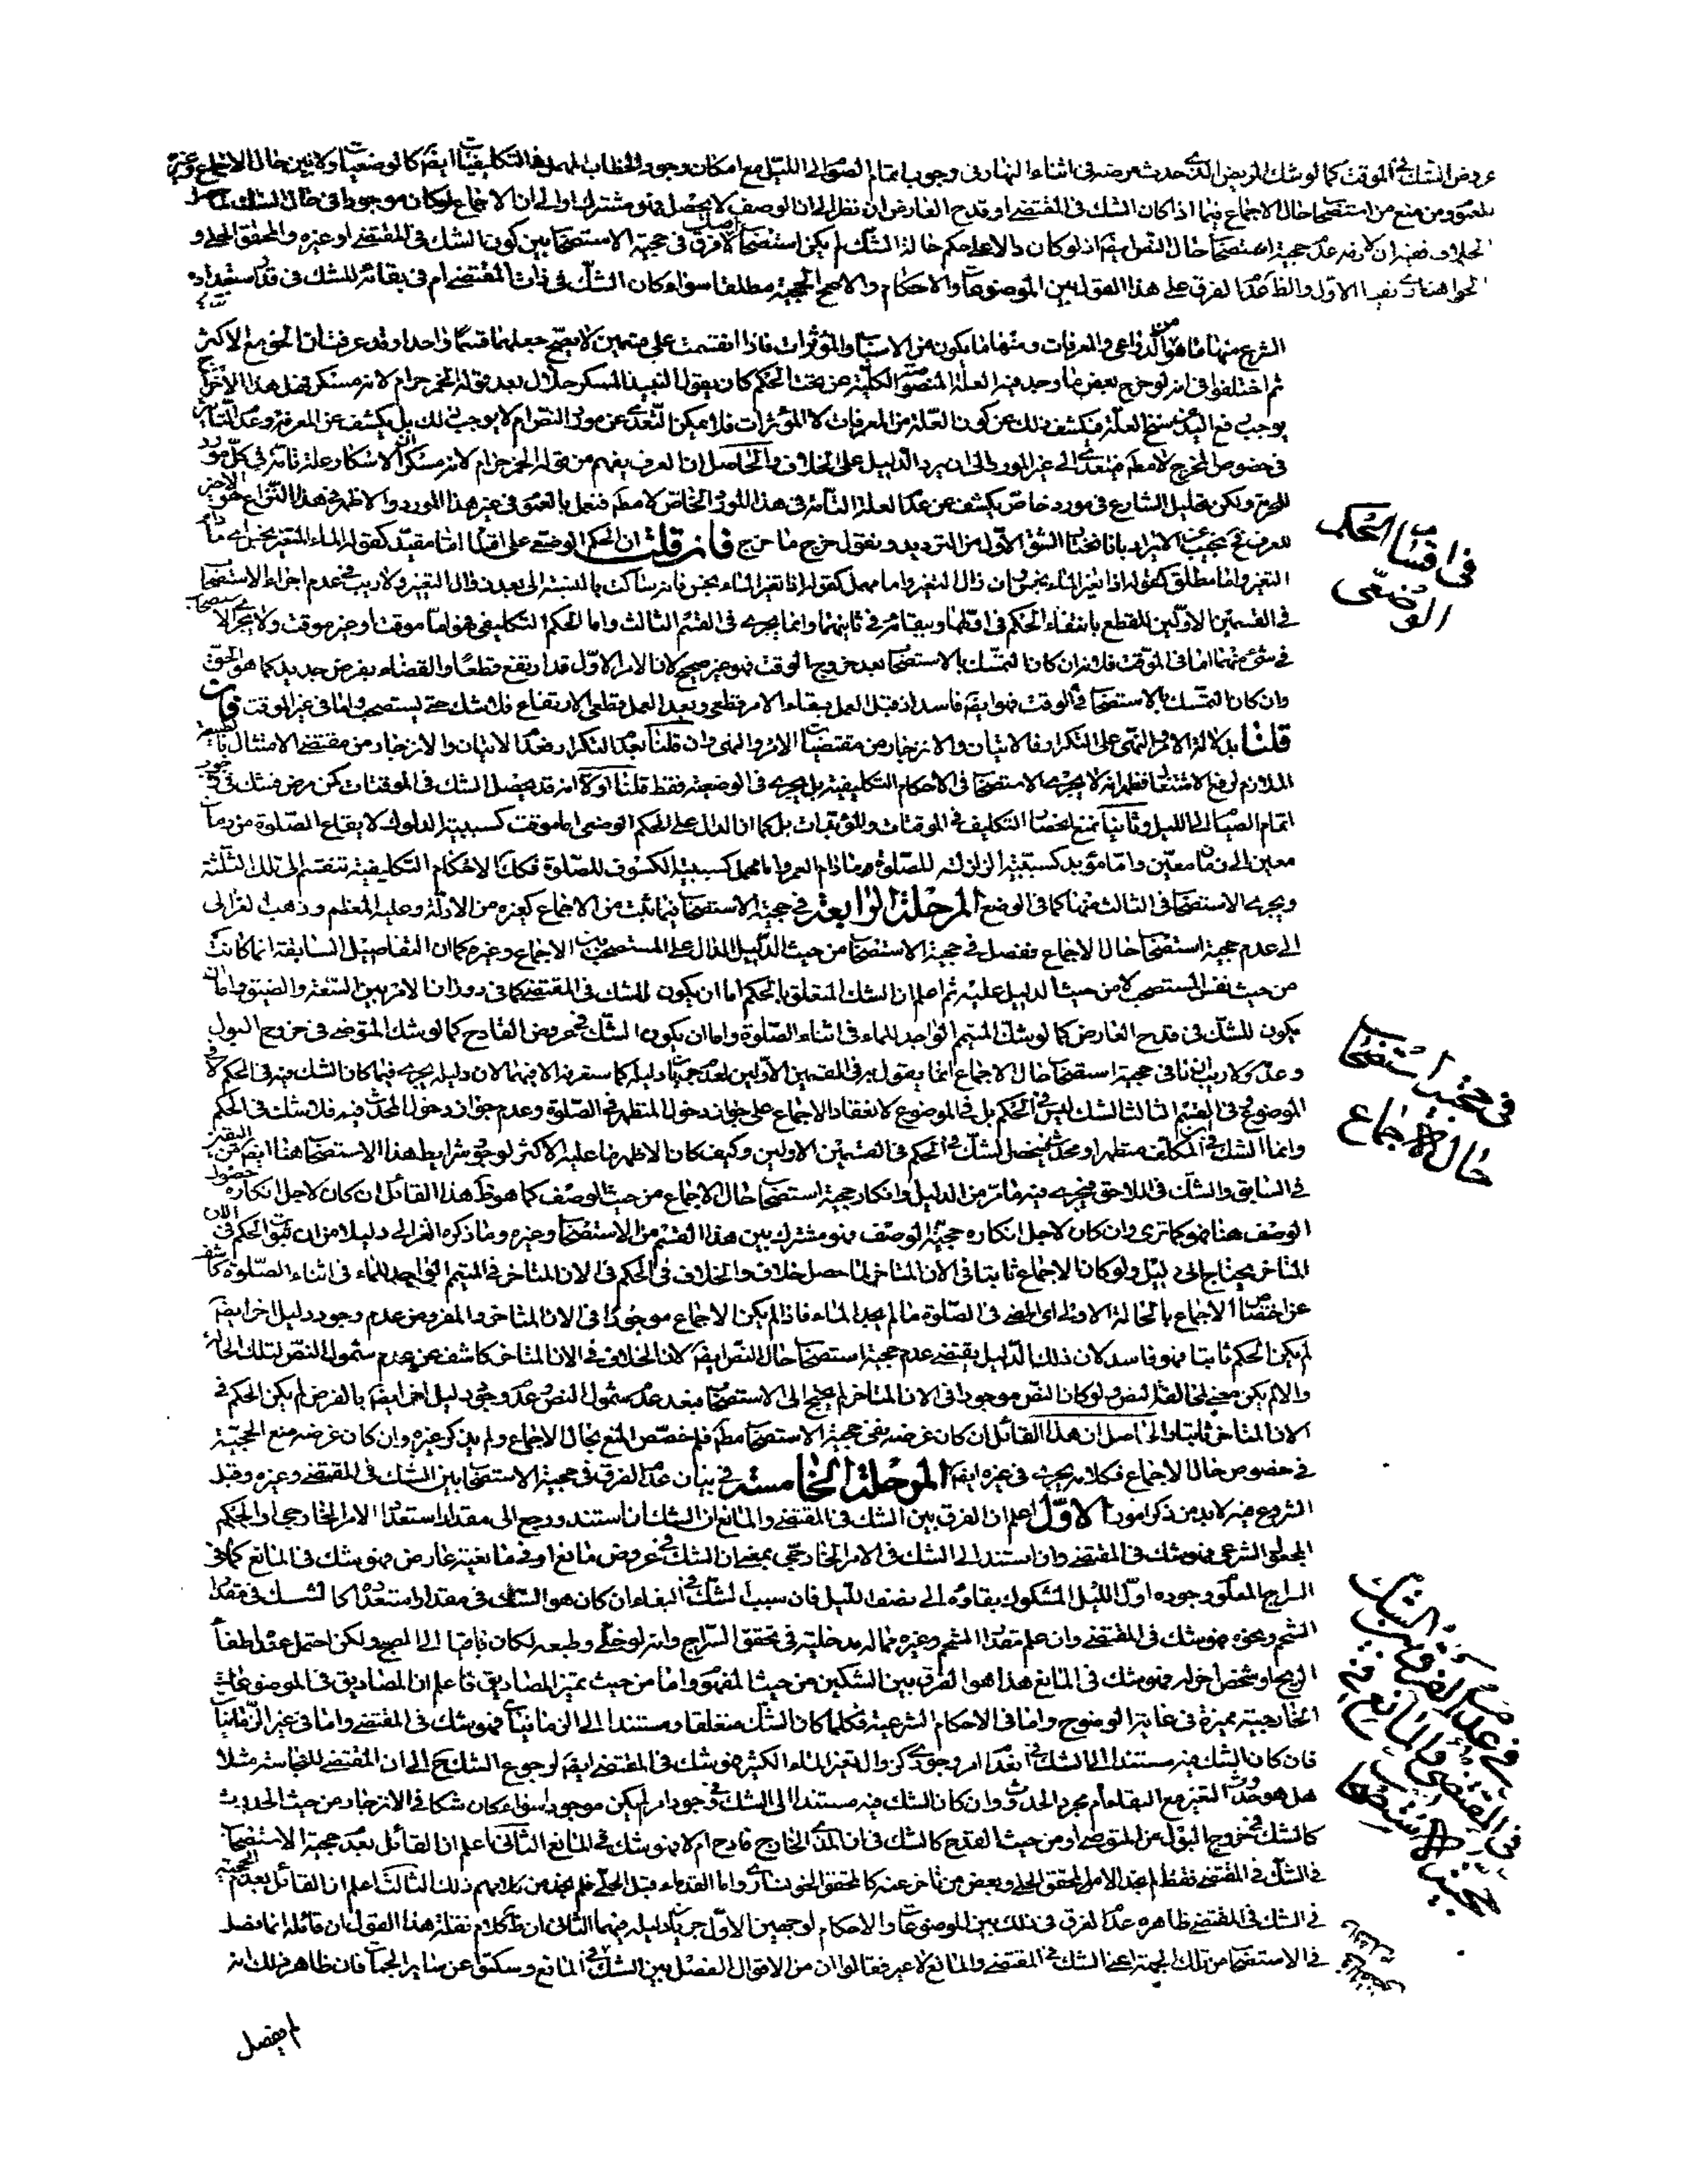 عروض الشك في الموقت كما لو شك المريض الذي حدث مرضه في اثناء النهار في وجوب اتمام الصوم الى الليل مع امكان وجود الخطاب المهمل في التكليفيات ايضا كالوضعيات ولا بين حال الاجماع وغيره
ومن منع من استصحاب حال الاجماع فيما اذا كان الشك في المقتضى او قدح العارض ان نظر الى ان الوصف لا يحصل فهو مشترك او الى ان الاجماع لو كان موجودا في حال الشك لما حصل
الخلاف ففيه ان لازمه عدم حجية استصحاب حال النص ايضا اذ لو كان دالا على حكم حالة الشك لم يكن استصحابا اصل لا فرق في حجية الاستصحاب بين كون الشك في المقتضى او غيره والمحقق الحلى و
الخوانسارى نفيا الاول والظاهر عدم الفرق على هذا القول بين الموضوعات والاحكام والاصح الحجية مطلقا سواء كان الشك في ذات المقتضى ام في بقائه للشك في قدر استعداده
الشرع منها ما هو من الدواعى والمعرفات ومنها ما يكون من الاسباب والمؤثرات فاذا انقسمت على قسمين لا يصح جعلها قسما واحدا وقد عرفت ان الحق مع الاكثر
ثم اختلفوا في انه لو خرج بعض ما وجد فيه العلة المنصوصة الكلية عن تحت الحكم كان يقول النبيذ المسكر حلال بعد قوله الخمر حرام لانه مسكر فهل هذا الاخراج
يوجب رفع اليد عن العلة فيكشف ذلك عن كون العلة من المعرفات لا المؤثرات فلا يمكن التعدى عن مورد النص ام لا يوجب ذلك بل يكشف عن المعرفية وعدم التاثير
في خصوص المخرج لا مطم فيتعدى الى غير المورد الى ان يرد الدليل على الخلاف والحاصل ان العرف يفهم من قوله الخمر حرام لانه مسكر ان الاسكار علة تامة في كل مورد
للحرمة ولكن تحليل الشارع في مورد خاص يكشف عن عدم العلة التامة في هذا المورد الخاص لا مطم فنعمل بالعموم في غير هذا المورد والاظهر في هذا النزاع هو الاخير
للعرف فح نجيب عن الايراد بانا نختار الشق الاول من الترديد ونقول خرج ما خرج فان قلت ان الحكم الوضعى على اقسام اما مقيد كقوله الماء المتغير نجس ما دام
التغير واما مطلق كقوله اذا تغير الماء ينجس وان زال التغير واما مهمل كقوله اذا تغير الماء نجس فانه ساكت بالنسبة الى بعد زوال التغير ولا ريب في عدم اجراء الاستصحاب
في القسمين الاولين للقطع بانتفاء الحكم في اولهما وببقائه في ثانيهما وانما يجرى في القسم الثالث واما الحكم التكليفى فهو اما موقت او غير موقت ولا يجرى الاستصحاب
في شئ منهما اما في الموقت فلانه ان كان التمسك بالاستصحاب بعد خروج الوقت فهو غير صحيح لان الامر الاول قد ارتفع قطعا والقضاء بفرض جديد كما هو الحق
وان كان التمسك بالاستصحاب في الوقت فهو ايضا فاسد اذ قبل العمل بقاء الامر قطعى وبعد العمل قطعى الارتفاع فلا شك حتى يستصحب واما في غير الموقت فان
قلنا بدلالة الامر والنهى على التكرار فالاتيان والانزجار من مقتضيات الامر والنهى وان قلنا بعدم التكرار فعدم الاتيان والانزجار من مقتضى الامتثال
الملازم لرفع الاشتغال فظهر انه لا يجرى الاستصحاب في الاحكام التكليفية بل يجرى في الوضعية فقط قلنا اولا انه قد يحصل الشك في الموقتات كمن مرض فشك في وجوب
اتمام الصيام الى الليل وثانيا نمنع انحصار التكليف في الموقتات والمؤبدات بل كما ان الدال على الحكم الوضعى اما موقت كسببية الدلوك لايقاع الصلوة من زمان
معين الى زمان معين واما مؤبد كسببية الزلزلة للصلوة ما دام العمر واما مهمل كسببية الكسوف للصلوة فكذا الاحكام التكليفية تنقسم الى تلك الثلثة
ويجرى الاستصحاب في الثالث منها كما في الوضع المرحلة الرابعة في حجية الاستصحاب فيما ثبت من الاجماع كغيره من الادلة وعليه المعظم وذهب الغزالى
الى عدم حجية استصحاب حال الاجماع ففصل في حجية الاستصحاب من حيث الدليل الدال على المستصحب بين الاجماع وغيره كما ان التفاصيل السابقة انما كانت
من حيث نفس المستصحب لا من حيث الدليل عليه ثم اعلم ان الشك المتعلق بالحكم اما ان يكون للشك في المقتضى كما في دوران الامر بين السعة والضيق واما ان
يكون للشك في قدح العارض كما لو شك المتيمم الواجد للماء في اثناء الصلوة واما ان يكون الشك في عروض القادح كما لو شك المتوضى في خروج البول
وعدمه ولا ريب ان نافى حجية استصحاب حال الاجماع انما يقول به في القسمين الاولين لعدم جريان دليله كما ستعرفه الا فيهما لان دليله يجرى فيما كان الشك فيه في الحكم لا
الموضوع وفى القسم الثالث الشك ليس في الحكم بل في الموضوع لانعقاد الاجماع على جواز دخول المتطهر في الصلوة وعدم جواز دخول المحدث فيه فلا شك في الحكم
وانما الشك في ان المكلف متطهر او محدث فينحصر الشك في الحكم في القسمين الاولين وكيف كان الاظهر ما عليه الاكثر لوجود شرايط هذا الاستصحاب هنا ايضا من اليقين
في السابق والشك في اللاحق فيجرى فيه ما مر من الدليل وانكار حجية استصحاب حال الاجماع من حيث الوصف كما هو ظ هذا القائل ان كان لاجل انكاره حصول
الوصف هنا فهو كما ترى وان كان لاجل انكاره حجية الوصف فهو مشترك بين هذا القسم من الاستصحاب وغيره وما ذكره الغزالى دليلا من ان ثبوت الحكم في الان
المتاخر يحتاج الى دليل ولو كان الاجماع ثابتا في الان المتاخر لما حصل خلاف والخلاف في الحكم في الان المتاخر في المتيمم الواجد للماء في اثناء الصلوة كاشف
عن اختصاص الاجماع بالحالة الاولى اى المضى في الصلوة ما لم يجد الماء فاذا لم يكن الاجماع موجودا في الان المتاخر والمفروض عدم وجود دليل اخر ايضا
لم يكن الحكم ثابتا فهو فاسد لان ذلك الدليل يقتضى عدم حجية استصحاب حال النص ايضا لان الخلاف في الان المتاخر كاشف عن عدم شمول النص لتلك الحالة
والا لم يكن معنى لمخالفة النص ولو كان النص موجودا في الان المتاخر لم يحتج الى الاستصحاب فبعد عدم شمول النص وعدم وجود دليل اخر ايضا بالفرض لم يكن الحكم في
الان المتاخر ثابتا والحاصل ان هذا القائل ان كان غرضه نفى حجية الاستصحاب مطم فلم خصص المنع بحال الاجماع ولم يذكر غيره وان كان غرضه منع الحجية
في خصوص حال الاجماع فكلامه يجرى في غيره ايضا المرحلة الخامسة في بيان عدم الفرق في حجية الاستصحاب بين الشك في المقتضى وغيره وقبل
الشروع فيه لا بد من ذكر امور الاول اعلم ان الفرق بين الشك في المقتضى والمانع ان الشك ان استند ورجع الى مقدار استعداد الامر الخارجى او الحكم
المجعول الشرعى فهو شك في المقتضى وان استند الى الشك في الامر الخارجى بمعنى ان الشك في عروض مانع او في مانعية عارض فهو شك في المانع كما في
السراج المعلوم وجوده اول الليل المشكوك بقاؤه الى نصف الليل فان سبب الشك في البقاء ان كان هو الشك في مقدار استعداده كالشك في مقدار
الشحم ونحوه فهو شك في المقتضى وان علم مقدار الشحم وغيره مما له مدخلية في تحقق السراج وانه لو خلى وطبعه لكان باقيا الى الصبح ولكن احتمل عنده اطفاء
الريح او شخص اخر له فهو شك في المانع هذا هو الفرق بين الشكين من حيث المفهوم واما من حيث تميز المصاديق فاعلم ان المصاديق في الموضوعات
الخارجية مميزة في غاية الوضوح واما في الاحكام الشرعية فكلما كان الشك متعلقا ومستندا الى الزمانيات فهو شك في المقتضى واما في غير الزمانيات
فان كان الشك فيه مستندا الى الشك في بعد امر وجودى كزوال تغير الماء الكثير فهو شك في المقتضى ايضا لرجوع الشك ح الى ان المقتضى للنجاسة مثلا
هل هو حدوث التغير مع البقاء ام مجرد الحدوث وان كان الشك فيه مستندا الى الشك في وجود امر لم يكن موجودا سواء كان شكا في الانزجار من حيث الحدوث
كالشك في خروج البول من المتوضى او من حيث القدح كالشك في ان المذى الخارج قادح ام لا فهو شك في المانع الثانى اعلم ان القائل بعدم حجية الاستصحاب
في الشك في المقتضى فقط لم نجد الا المحقق الحلى وبعض من تاخر عنه كالمحقق الخوانسارى واما القدماء قبل الحلى فلم نجد من كلامهم ذلك الثالث اعلم ان القائل بعدم الحجية
في الشك في المقتضى ظاهره عدم الفرق في ذلك بين الموضوعات والاحكام لوجهين الاول جريان دليله فيهما الثانى ان ظ كلام نقلة هذا القول ان قائله انما فصل
في الاستصحاب من تلك الجهة اعنى الشك في المقتضى والمانع لا غير فقالوا ان من الاقوال الفصل بين الشك في المانع وسكتوا عن ساير الجهات فان ظاهر ذلك انه
لم يفصل
في اقسام الحكم
الوضعى
في حجية استصحاب
حال الاجماع
في عدم الفرق بين الشك
في المقتضى والمانع في
حجية الاستصحاب